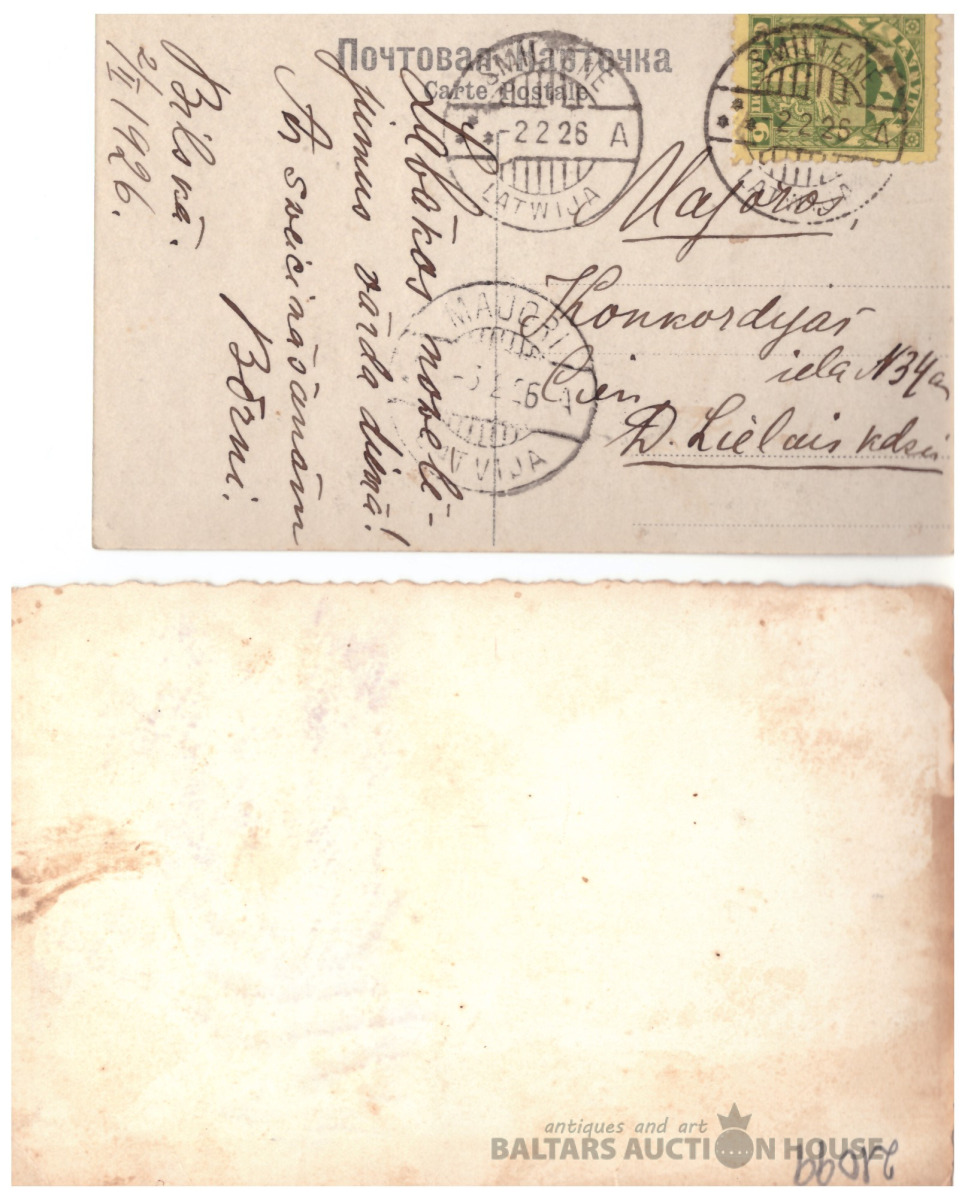 Почтовая Карточка
Carte Postale
SMILTENE
-2.2.26 A
LATWIJA
SMILTENE
-2.2.26 A
LATWIJA
MAJORI
-3.2.26 A
LATVIJA
Majoros,
Konkordijas
iela N34a
Cien.
D. Lielais kdse
Vislabākos novelē-
jumus vārda dienā!
Ar sveicināšanām
Bērni.
Bilskā.
2/II 1926.
antiques and art
BALTARS AUCTION HOUSE